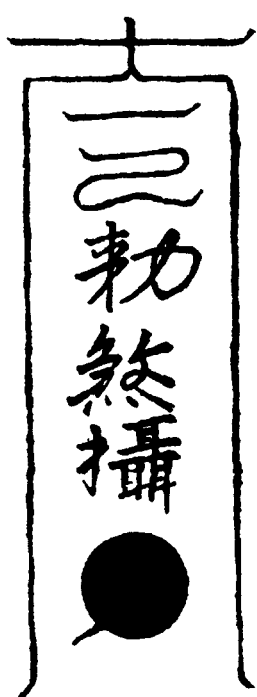 勅
煞
攝